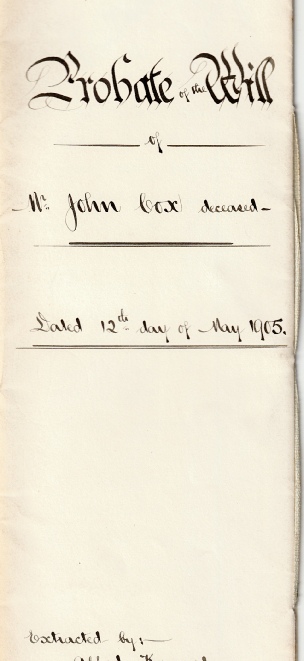 Probate of the Will
of
Mr. John Cox deceased
Dated 12th day of May 1905.
Extracted by:-